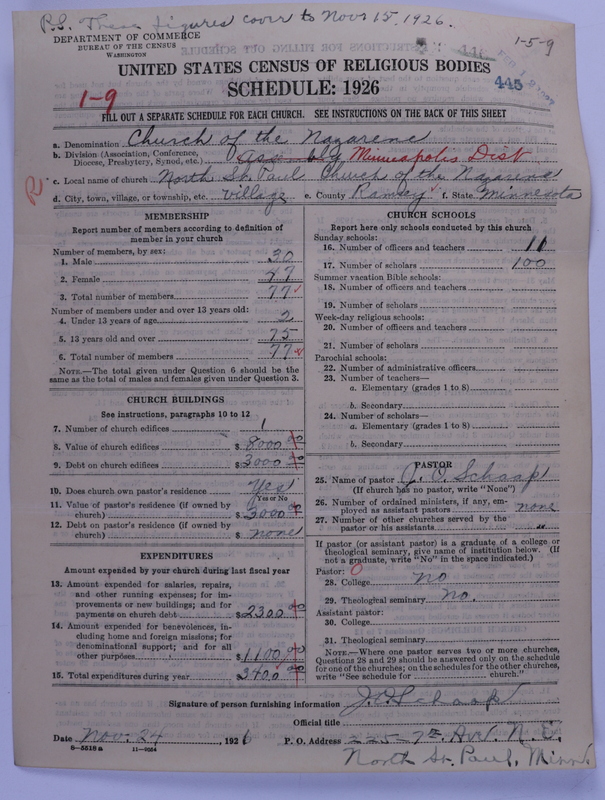 P.S. These figures cover to Nov. 15, 1926.
DEPARTMENT OF COMMERCE
BUREAU OF THE CENSUS
WASHINGTON
1-5-9
UNITED STATES CENSUS OF RELIGIOUS BODIES
445
1-9
SCHEDULE: 1926
FILL OUT A SEPARATE SCHEDULE FOR EACH CHURCH. SEE INSTRUCTIONS ON THE BACK OF THIS SHEET
a. Denomination Church of the Nazarene
b. Division (Association, Conference, Diocese, Presbytery, Synod, etc.) Minneapolis Dist
c. Local name of church North St. Paul Church of the Nazarene
d. City, town, village, or township, etc. Village e. County Ramsey f. State Minnesota
MEMBERSHIP
Report number of members according to definition of
member in your church
Number of members, by sex:
1. Male 30
2. Female 47
3. Total number of members 77
Number of members under and over 13 years old:
4. Under 13 years of age 2
5. 13 years old and over 75
6. Total number of members 77
NOTE.—The total given under Question 6 should be the
same as the total of males and females given under Question 3.
CHURCH BUILDINGS
See instructions, paragraphs 10 to 12
7. Number of church edifices 1
8. Value of church edifices $ 8000.00
9. Debt on church edifices $ 3000.00
10. Does church own pastor's residence Yes
Yes or No
11. Value of pastor's residence (if owned by
church) $ 3000.00
12. Debt on pastor's residence (if owned by
church) $ none
EXPENDITURES
Amount expended by your church during last fiscal year
13. Amount expended for salaries, repairs,
and other running expenses; for im-
provements or new buildings; and for
payments on church debt $ 2300.00
14. Amount expended for benevolences, in-
cluding home and foreign missions; for
denominational support; and for all
other purposes $ 1100.00
15. Total expenditures during year $ 3400.00
CHURCH SCHOOLS
Report here only schools conducted by this church
Sunday schools:
16. Number of officers and teachers 11
17. Number of scholars 100
Summer vacation Bible schools:
18. Number of officers and teachers
19. Number of scholars
Week-day religious schools:
20. Number of officers and teachers
21. Number of scholars
Parochial schools:
22. Number of administrative officers
23. Number of teachers—
a. Elementary (grades 1 to 8)
b. Secondary
24. Number of scholars—
a. Elementary (grades 1 to 8)
b. Secondary
PASTOR
25. Name of pastor J. O. Schaap
(If church has no pastor, write "None")
26. Number of ordained ministers, if any, em-
ployed as assistant pastors none
27. Number of other churches served by the
pastor or his assistants "
If pastor (or assistant pastor) is a graduate of a college or
theological seminary, give name of institution below. (If
not a graduate, write "No" in the space indicated.)
Pastor: 0
28. College no
29. Theological seminary no.
Assistant pastor:
30. College
31. Theological seminary
NOTE.—Where one pastor serves two or more churches,
Questions 28 and 29 should be answered only on the schedule
for one of the churches; on the schedules for the other churches,
write "See schedule for church."
Signature of person furnishing information J. O. Schaap
Official title
Date Nov. 24, 1926 P. O. Address 225-7th. Ave. N. E.
8-5518 a 11-9054
North St. Paul, Minn.